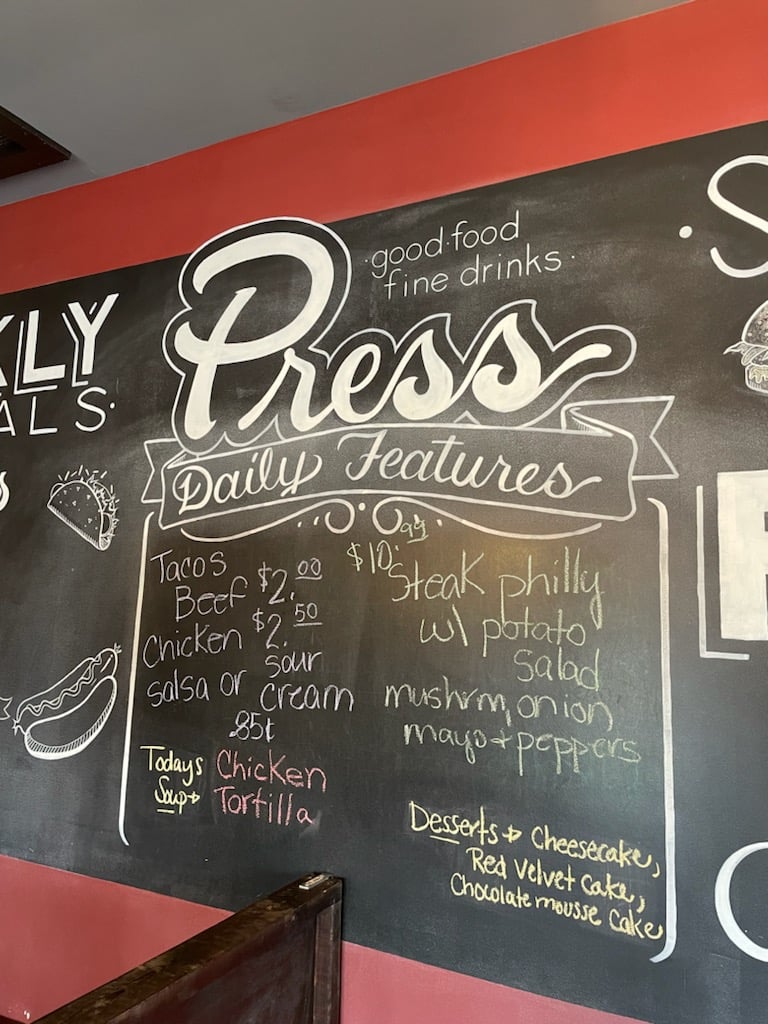 ·good·food
fine drinks·
Press
Daily Features
KLY
ALS·
Tacos
Beef $2.00
Chicken $2.50
salsa or sour cream
.85¢
Todays Chicken
Soup → Tortilla
$10.99
Steak philly
w/ potato
salad
mushrm, onion,
mayo + peppers
Desserts → Cheesecake,
Red Velvet Cake,
Chocolate mousse Cake